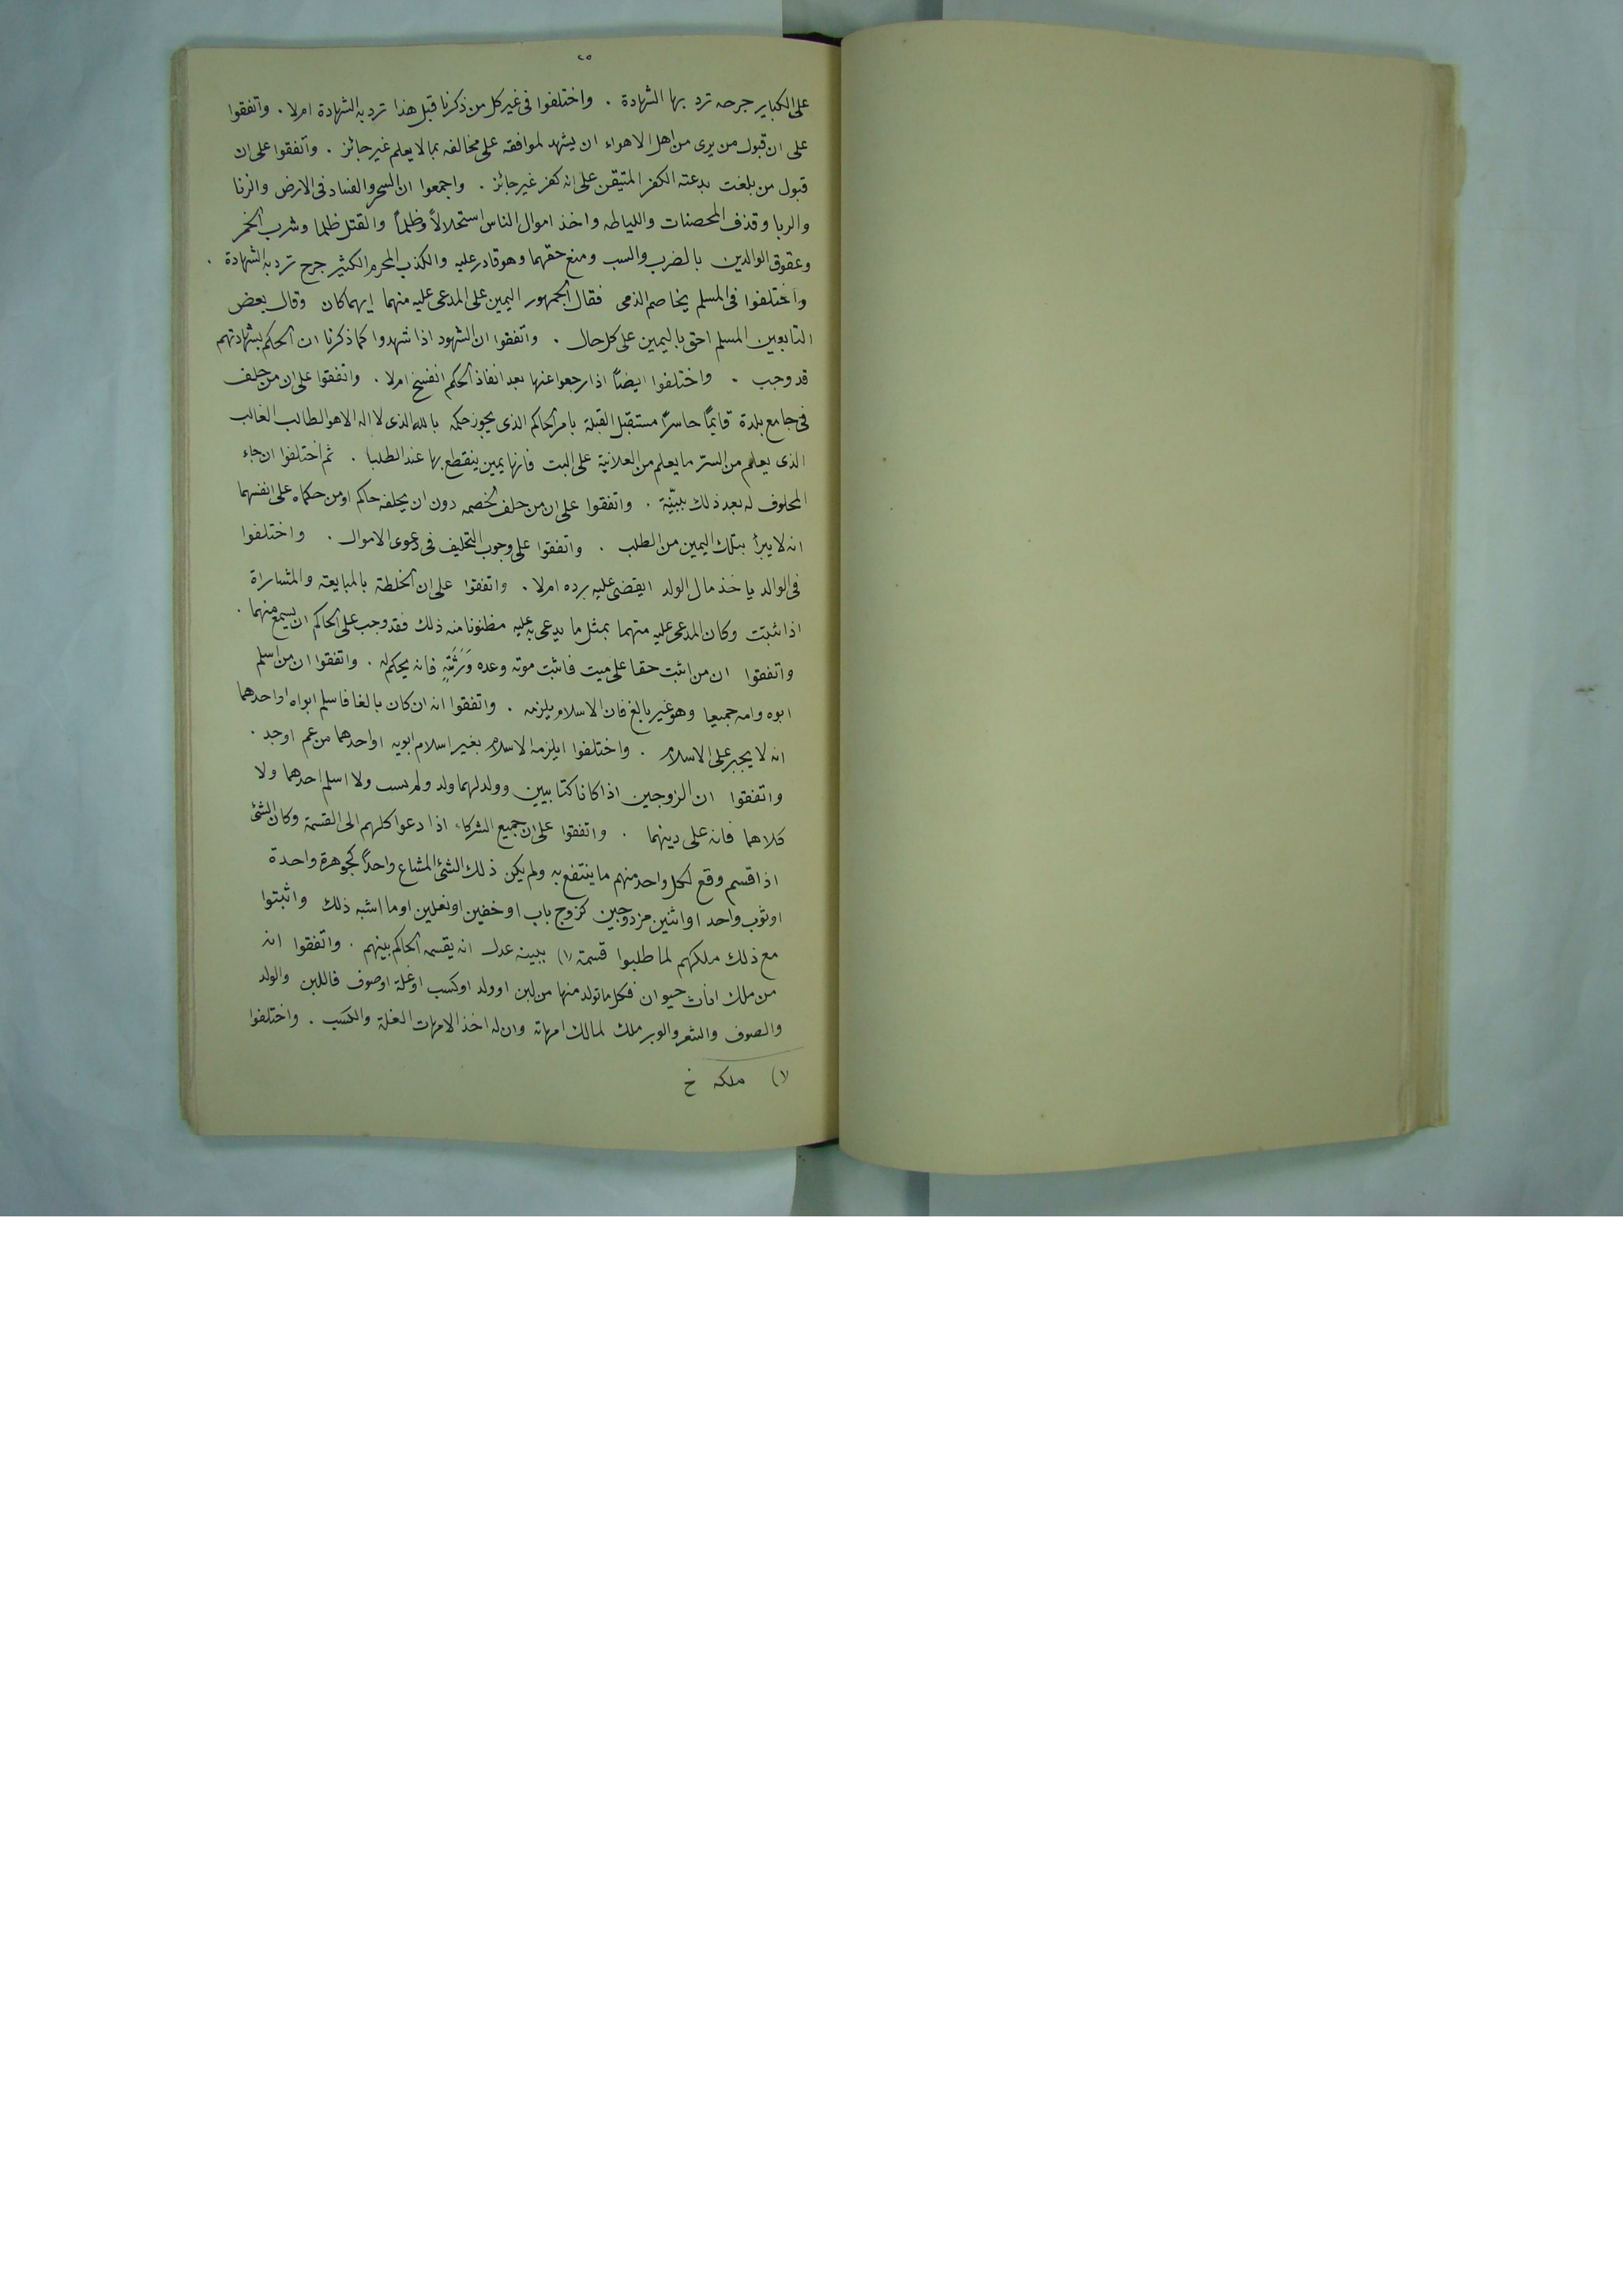 ٢٥
على الكباير جرحه ترد بها الشهادة . واختلفوا فى غير كل من ذكرنا قبل هذا ترد به الشهادة ام لا . واتفقوا
على ان قبول من يرى من اهل الاهواء ان يشهد لموافقه على مخالفه بما لا يعلم غير جائز . واتفقوا على ان
قبول من بلغت بدعته الكفر المتيقن على انه كفر غير جائز . واجمعوا ان السحر والفساد فى الارض والزنا
والربا وقذف المحصنات واللياطه واخذ اموال الناس استحلالاً وظلماً والقتل ظلما وشرب الخمر
وعقوق الوالدين بالضرب والسب ومنع حقهما وهو قادر عليه والكذب المحرم الكثير جرح ترد به الشهادة .
واختلفوا فى المسلم يخاصم الذمى فقال الجمهور اليمين على المدعى عليه منهما ايهما كان وقال بعض
التابعين المسلم احق باليمين على كل حال . واتفقوا ان الشهود اذا شهدوا كما ذكرنا ان الحكم بشهادتهم
قد وجب . واختلفوا ايضاً اذا رجعوا عنها بعد انفاذ الحكم انفسخ ام لا . واتفقوا على ان من حلف
فى جامع بلدة قايماً حاسراً مستقبل القبلة بامر الحاكم الذى يجوز حكمه بالله الذى لا اله الا هو الطالب الغالب
الذى يعلم من السر ما يعلم من العلانية على البت فانها يمين ينقطع بها عند الطلبا . ثم اختلفوا ان جاء
المحلوف له بعد ذلك ببيّنة . واتفقوا على ان من حلف لخصمه دون ان يحلفه حاكم او من حكماه على انفسهما
انه لا يبرأ بتلك اليمين من الطلب . واتفقوا على وجوب التحليف فى دعوى الاموال . واختلفوا
فى الوالد ياخذ مال الولد ايقضى عليه برده ام لا . واتفقوا على ان الخلطة بالمبايعته والمشاراة
اذا ثبتت وكان المدعى عليه متهما بمثل ما يدعى به عليه مظنونا منه ذلك فقد وجب على الحاكم ان يسمع منهما .
واتفقوا ان من اثبت حقا على ميت فاثبت موته وعده وَرَثَتِهِ فانه يحكم له . واتفقوا ان من اسلم
ابوه وامه جميعا وهو غير بالغ فان الاسلام يلزمه . واتفقوا انه ان كان بالغا فاسلم ابواه او احدهما
انه لا يجبر على الاسلام . واختلفوا ايلزمه الاسلام بغير اسلام ابويه او احدهما من عم او جد .
واتفقوا ان الزوجين اذا كانا كتابيين وولد لهما ولد ولم يسب ولا اسلم احدهما ولا
كلاهما فانه على دينهما . واتفقوا على ان جميع الشركاء اذا دعوا كلهم الى القسمة وكان الشئ
اذا قسم وقع لكل واحد منهم ما ينتفع به ولم يكن ذلك الشئ المشاع واحداً كجوهرة واحدة
او ثوب واحد او اثنين مزدوجين كزوج باب او خفين او نعلين او ما اشبه ذلك واثبتوا
مع ذلك ملكهم لما طلبوا قسمته (١) ببينه عدل انه يقسمه الحاكم بينهم . واتفقوا انه
من ملك اناث حيوان فكل ما تولد منها من لبن او ولد او كسب او غلة او صوف فاللبن والولد
والصوف والشعر والوبر ملك لمالك امهاته وان له اخذ الامهات الغلة والكسب . واختلفوا
(١) ملكه خ